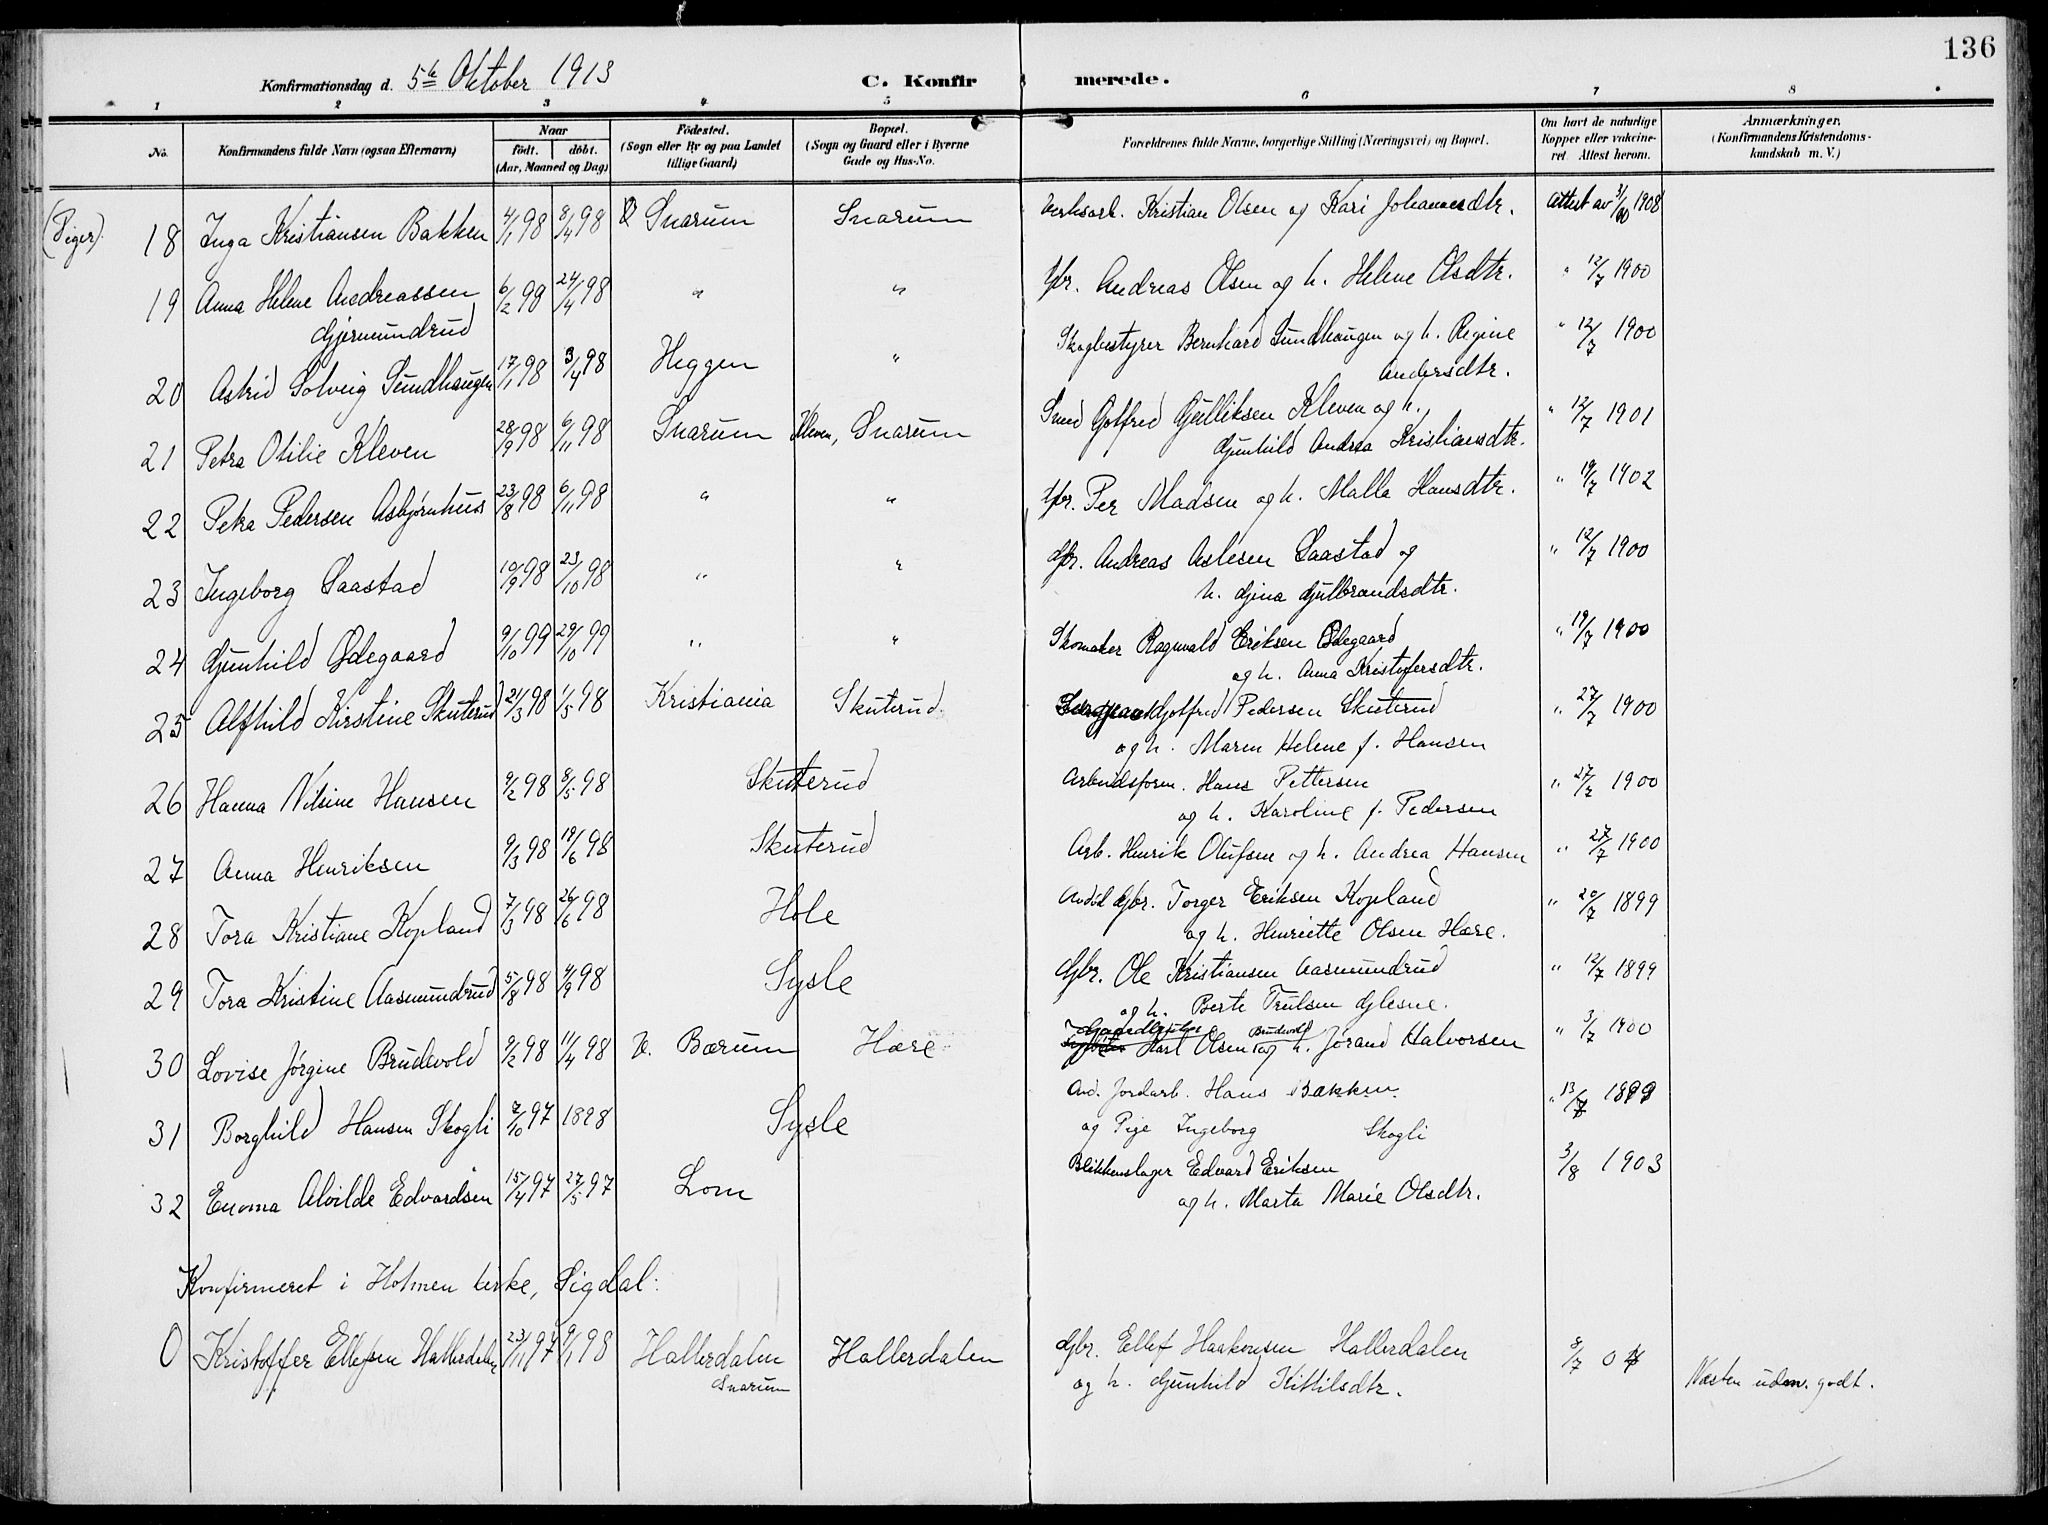 136
Konfirmationsdag d. 5te Oktober 1913
C. Konfirmerede.
1 2 3 4 5 6 7 8
No.
Konfirmandens fulde Navn (ogsaa Efternavn)
Naar
født. døbt.
(Aar, Maaned og Dag)
Fødested.
(Sogn eller By og paa Landet
tillige Gaard)
Bopæl.
(Sogn og Gaard eller i Byerne
Gade og Hus-No.
Forældrenes fulde Navne, borgerlige Stilling (Næringsvei) og Bopæl.
Om havt de naturlige
Kopper eller vakcine-
ret. Attest herom.
Anmærkninger,
(Konfirmandens Kristendoms-
kundskab m. V.)
(Piger).
18 Inga Kristiansen Bakken 4/1 98 8/4 98 Snarum Snarum Verksarb. Kristian Olsen og Kari Johannesdtr. Attest av 3/10 1908
19 Anna Helene Andreassen 6/2 99 24/4 98 " " Gbr. Andreas Olsen og h. Helene Olsdtr. " 12/7 1900
Gjermundrud
20 Astrid Solveig Sundhaugen 17/1 98 3/4 98 Heggen " Skogbestyrer Bernhard Sundhaugen og h. Regine " 12/7 1900
Andersdtr.
21 Petra Otilie Kleven 28/9 98 6/11 98 Snarum Kleven, Snarum Smed Gotfred Gulliksen Kleven og h. " 12/7 1901
Gunhild Andrea Kristiansdtr.
22 Petra Pedersen Asbjørnhus 23/8 98 6/11 98 " " Gbr. Per Madsen og h. Malla Hansdtr. " 19/7 1902
23 Ingeborg Saastad 10/9 98 23/10 98 " " Gbr. Andreas Aslesen Saastad og " 12/7 1900
h. Gina Gulbrandsdtr.
24 Gunhild Ødegaard 9/10 99 29/10 99 " " Skomaker Ragnvald Eriksen Ødegaard " 19/7 1900
og h. Anna Kristofersdtr.
25 Alfhild Kirstine Skuterud 21/3 98 1/5 98 Kristiania Skuterud Gotfred Pedersen Skuterud " 27/7 1900
og h. Maren Helene f. Hansen
26 Hanna Nilsine Hansen 9/2 98 8/5 98 Skuterud Arbeidsform. Hans Pettersen " 27/7 1900
og h. Karoline f. Pedersen
27 Anna Henriksen 9/3 98 19/6 98 Skuterud Arb. Henrik Olufsen og h. Andrea Hansen " 27/7 1900
28 Tora Kristiane Kopland 7/3 98 26/6 98 Hole Avdød Gbr. Torger Eriksen Kopland " 20/7 1899
og h. Henriette Olsen Hære.
29 Tora Kristine Aasmundrud 5/8 98 4/9 98 Sysle Gbr. Ole Kristiansen Aasmundrud " 12/7 1899
og h. Berte Trulsen Glesne.
30 Lovise Jørgine Brudevold 9/2 98 11/4 98 V. Bærum Hære Karl Olsen Brudevold og h. Jørand Halvorsen " 3/7 1900
31 Borghild Hansen Skogli 7/10 97 1898 Sysle Avd. Jordarb. Hans Bakken " 13/7 1899
og Pige Ingeborg Skogli
32 Emma Alvilde Edvardsen 15/4 97 27/5 97 Lom Blikkenslager Edvard Eriksen 3/8 1903
og h. Marta Marie Olsdtr.
Konfirmeret i Holmen kirke, Sigdal:
0 Kristoffer Ellefsen Hallerdalen 23/11 97 9/1 98 Hallerdalen Hallerdalen Gbr. Ellef Haakonsen Hallerdalen 8/7 04
Snarum og h. Gunhild Kittilsdtr. Næsten udm. godt.